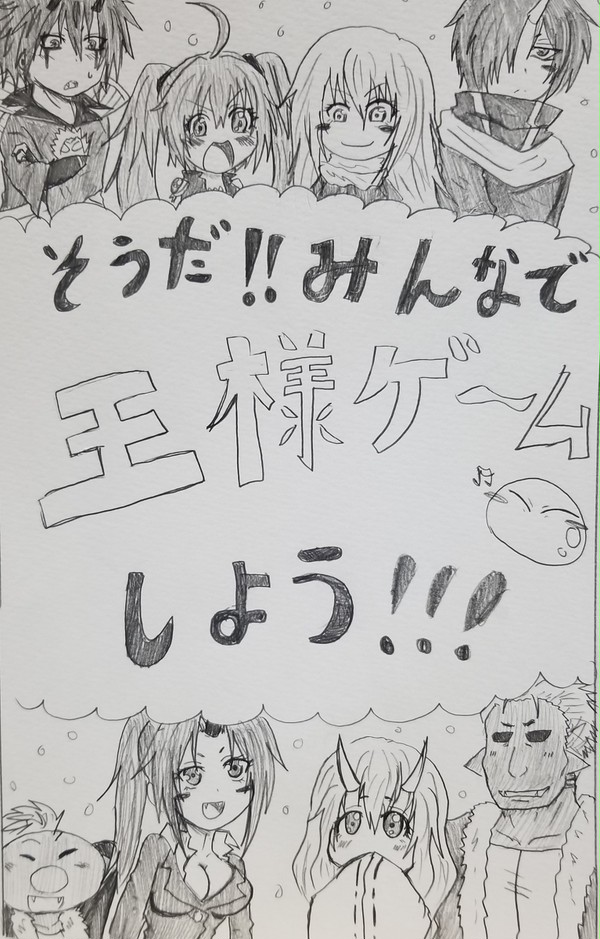 そうだ!!みんなで
王様ゲーム
しよう!!!